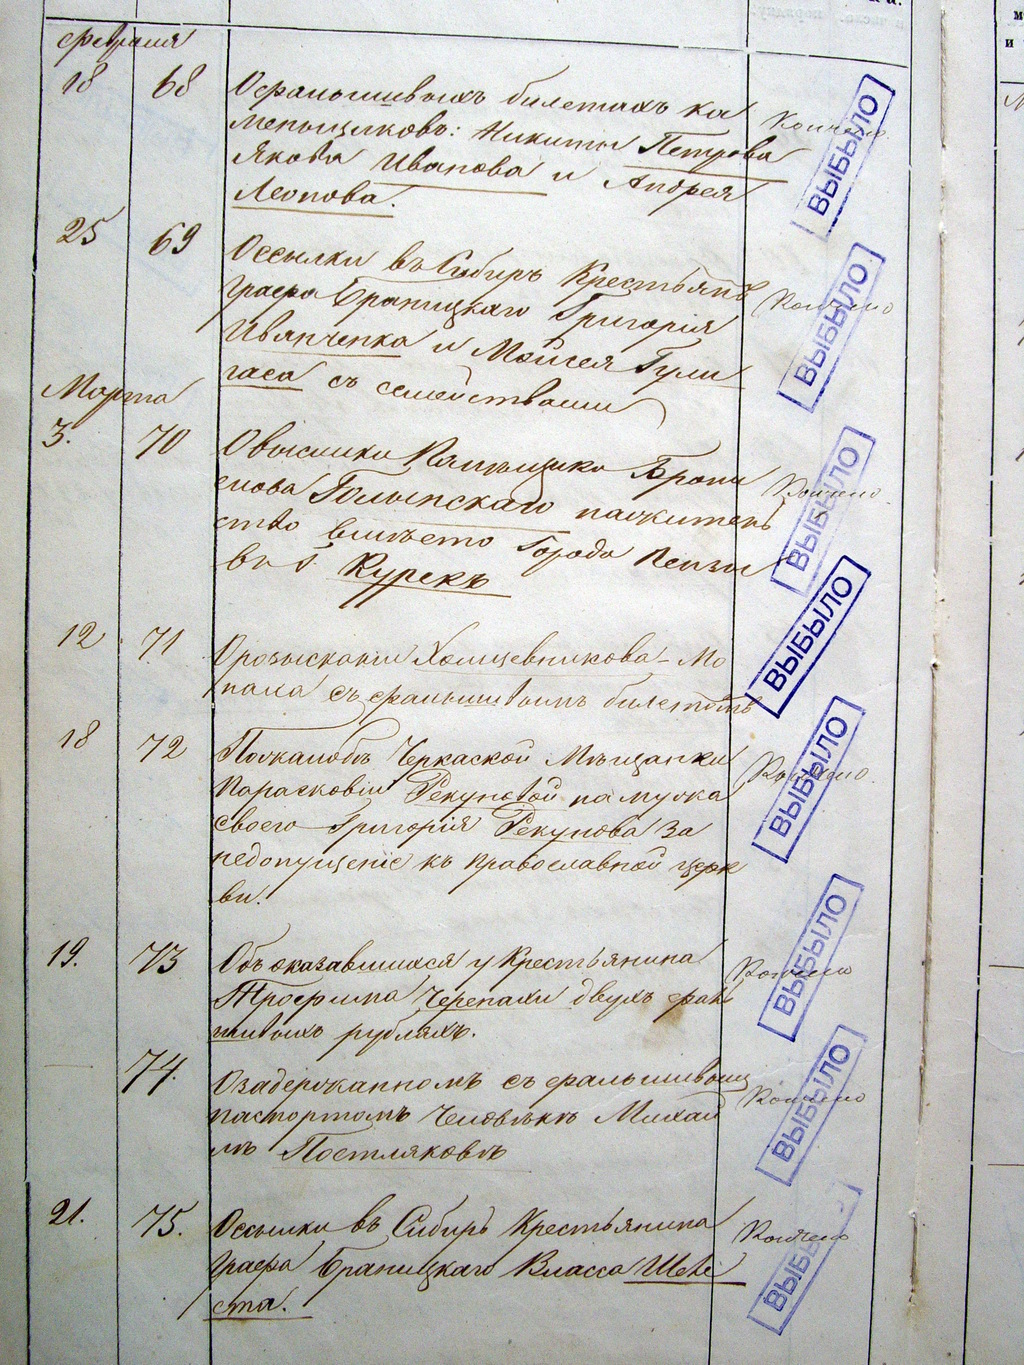 Февраля
18 68 О фальшивыхъ билетахъ ка
менщиковъ: Никиты Петрова
Якова Иванова и Андрея
Леонова.
Кончено
ВЫБЫЛО
25 69 О ссылки въ Сибирь Крестьянъ
Графа Браницкаго Григорія
Иванченка и Мойсея Гули
гаса съ семействами
Кончено
ВЫБЫЛО
Марта
3. 70 О высылки Брони
слова Голынскаго на житель
ство вместо Города Пензы
въ г. Курскъ
Кончено
ВЫБЫЛО
12 71 О розысканіи Холщевникова - Мо
наха съ фальшивымъ билетомъ
ВЫБЫЛО
18 72 По жалобѣ Черкаской Мѣщанки
Парасковіи Рекуновой на мужа
своего Григорія Рекунова за
недопущеніе къ православной церк
ви.
Кончено
ВЫБЫЛО
19. 73 Объ оказавшихся у Крестьянина
Трофима Черепахи двухъ фаль
шивыхъ рубляхъ.
Кончено
ВЫБЫЛО
74. О задержанномъ съ фальшивымъ
паспортомъ Человѣкѣ Михаи
лѣ Постляковѣ
Кончено
ВЫБЫЛО
21. 75. О ссылки въ Сибирь Крестьянина
Графа Браницкаго Власса Шеве
ста.
Кончено
ВЫБЫЛО